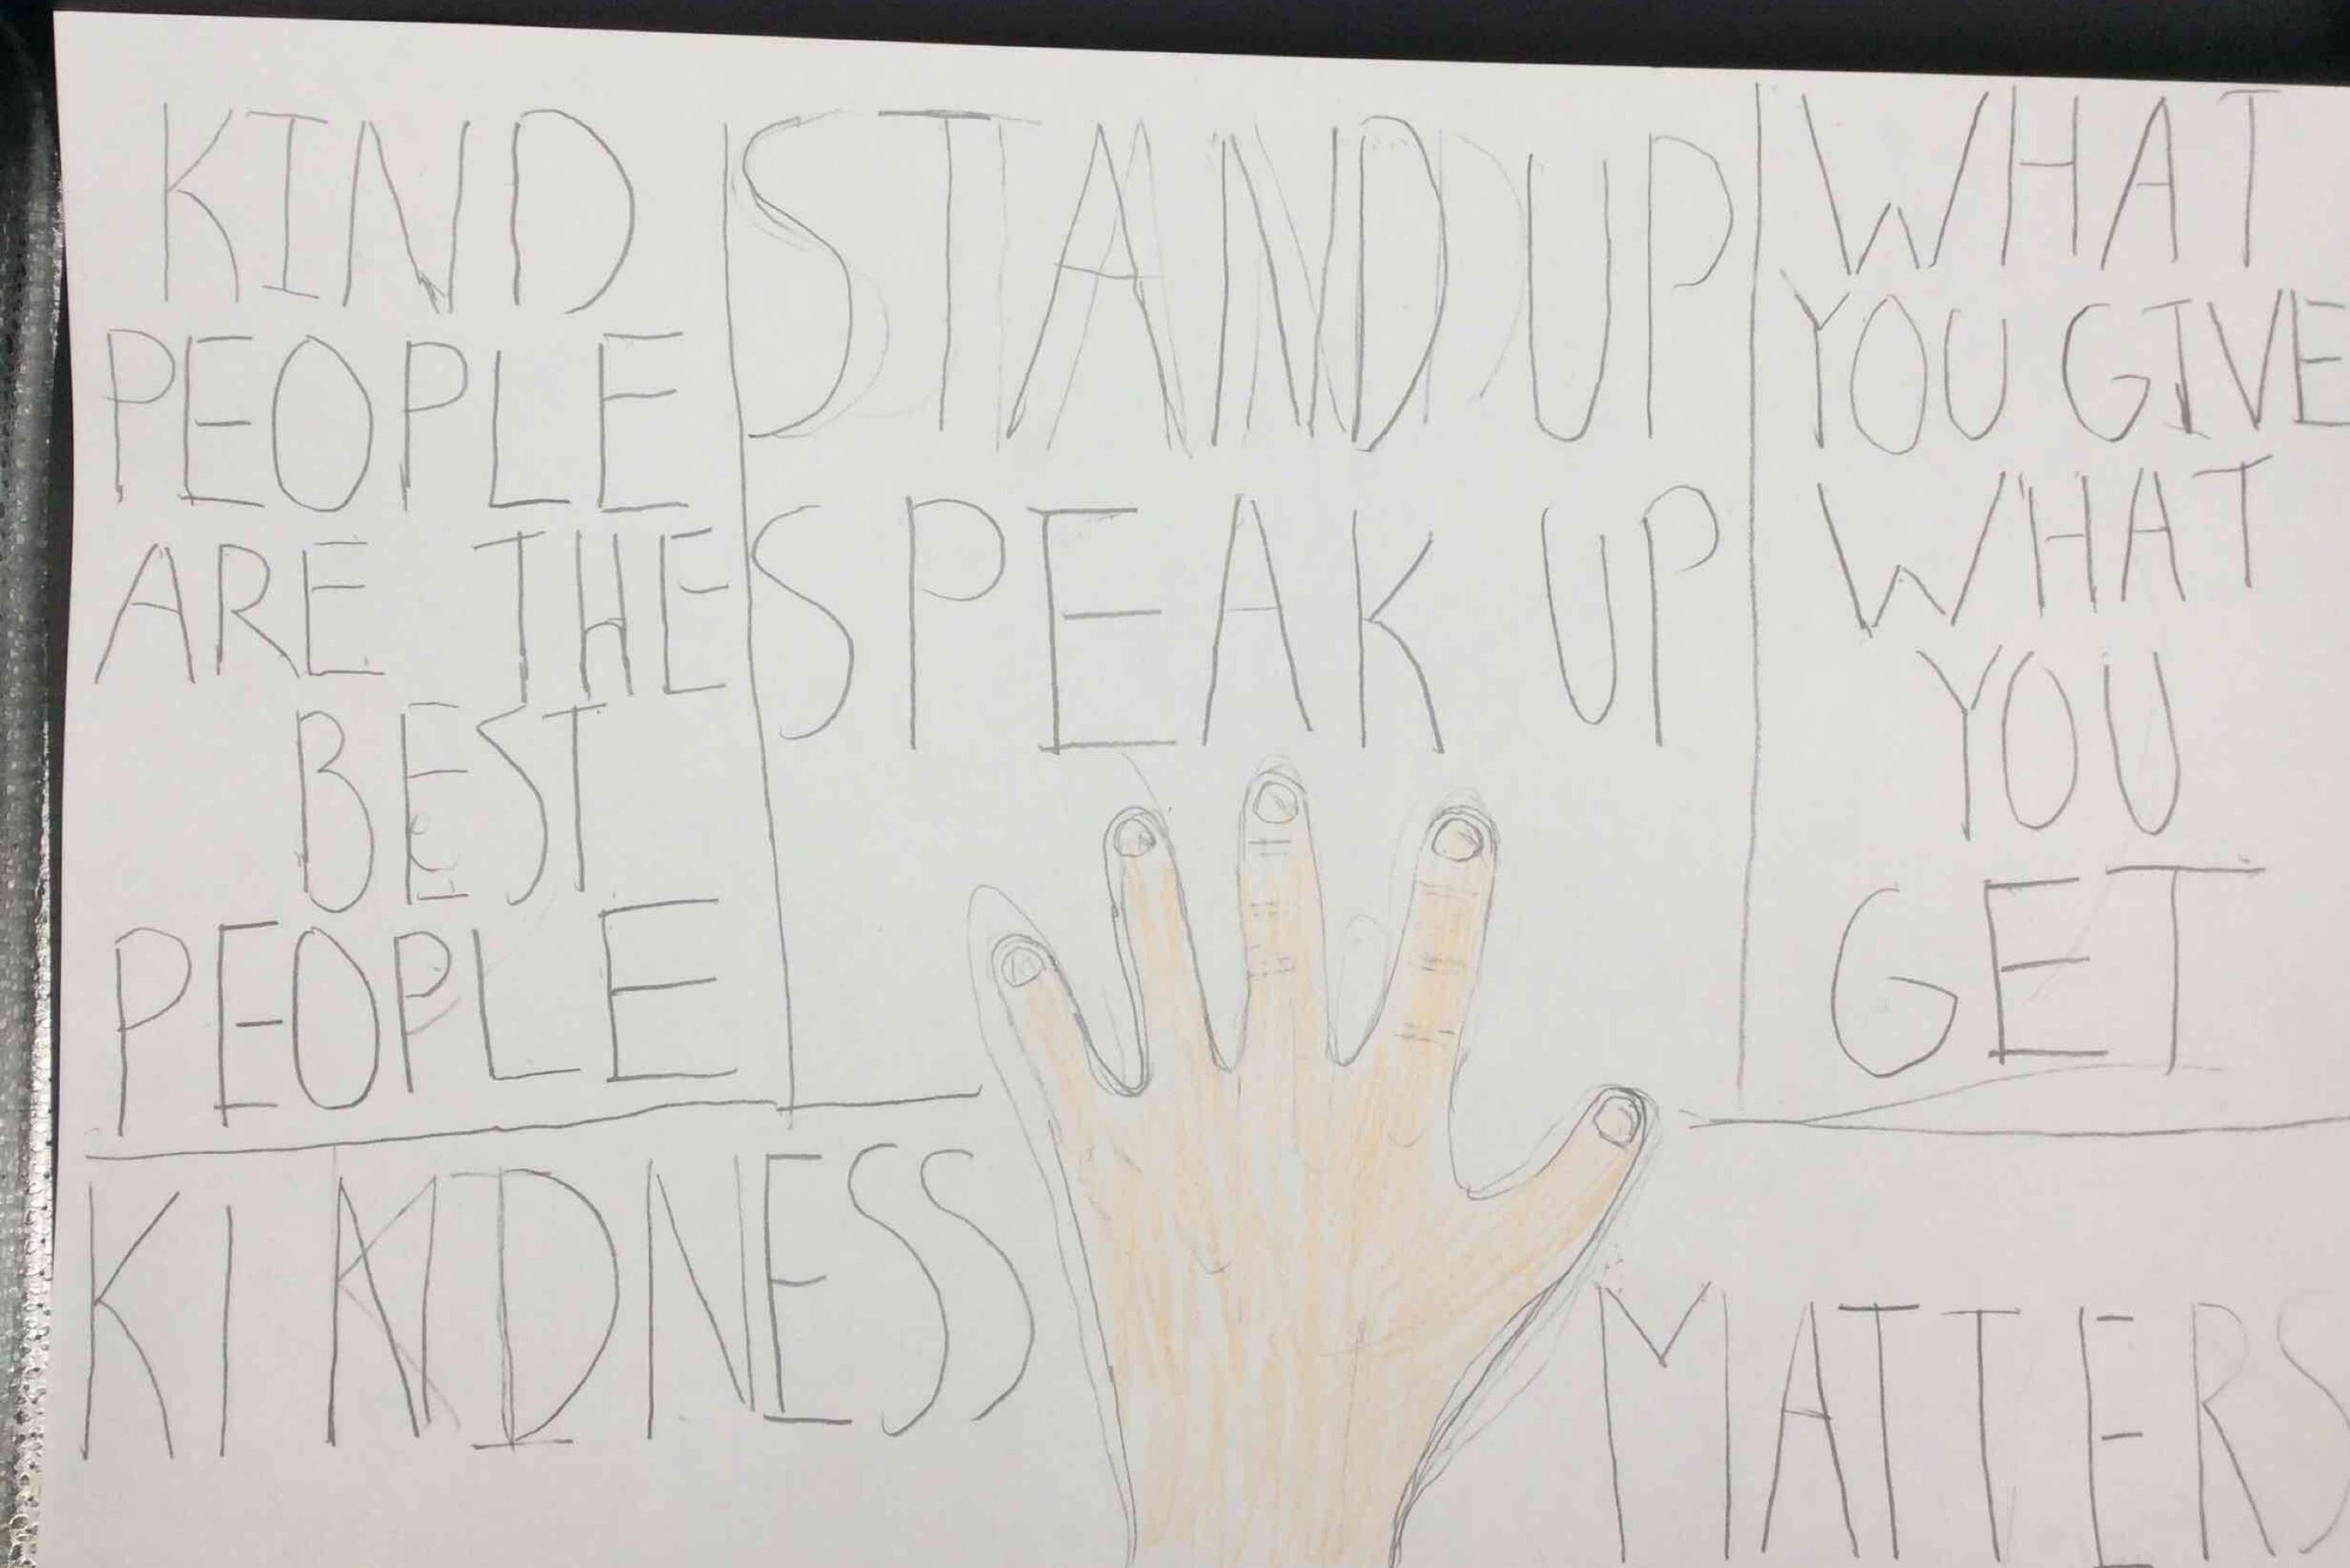 KIND
PEOPLE
ARE THE
BEST
PEOPLE
STAND UP
SPEAK UP
WHAT
YOU GIVE
WHAT
YOU
GET
KINDNESS
MATTERS